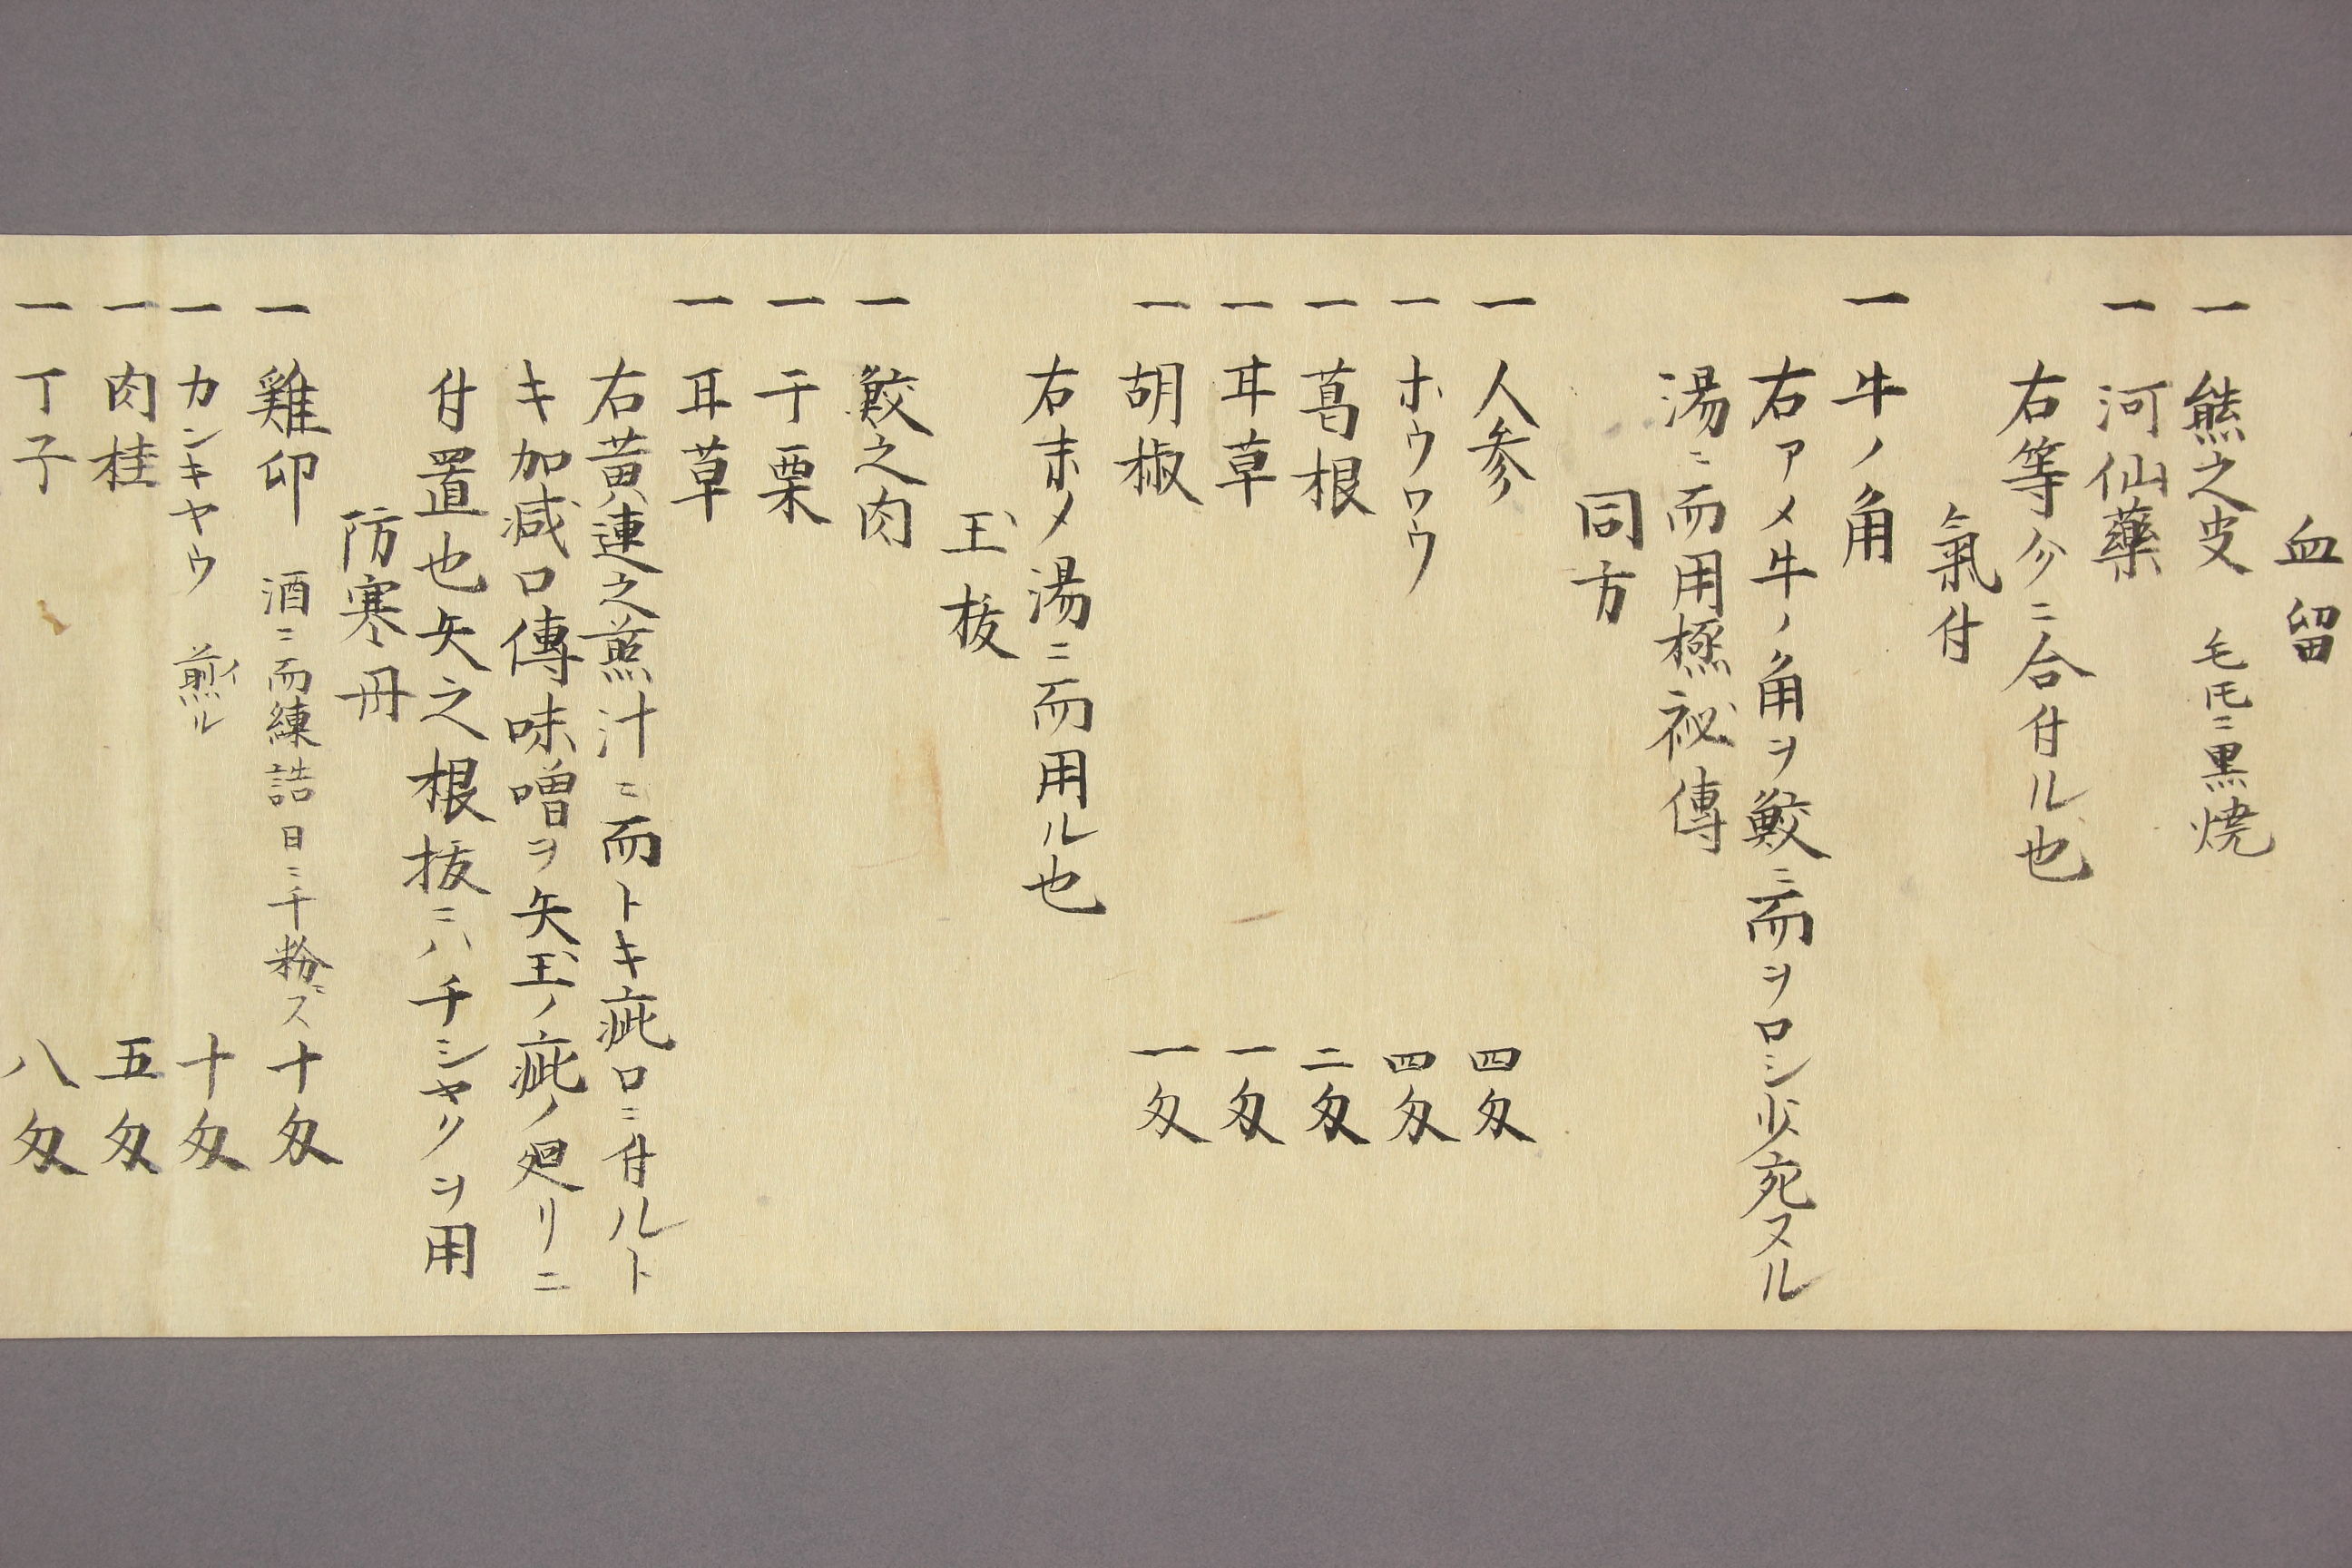 血留
一 熊之皮 毛氏ニ黒焼
一 河仙藥
右等分ニ合付ル也
氣付
一 牛ノ角
右アメ牛ノ角ヲ鮫ニ而ヲロシ少宛スル
湯ニ而用極祕傳
同方
一 人参 四匁
一 ホウロウ 四匁
一 葛根 二匁
一 耳草 一匁
一 胡椒 一匁
右末〆湯ニ而用ル也
玉抜
一 鮫之肉
一 干栗
一 耳草
右黄連之煎汁ニ而トキ疵口ニ付ルト
キ加減口傳味噌ヲ矢玉ノ疵ノ廻リニ
付置也矢之根抜ニハチシヤノヲ用
防寒丹
一 雞卵 酒ニ而練詰日ニ干粉ニス 十匁
一 カンキヤウ 煎イル 十匁
一 肉桂 五匁
一 丁子 八匁